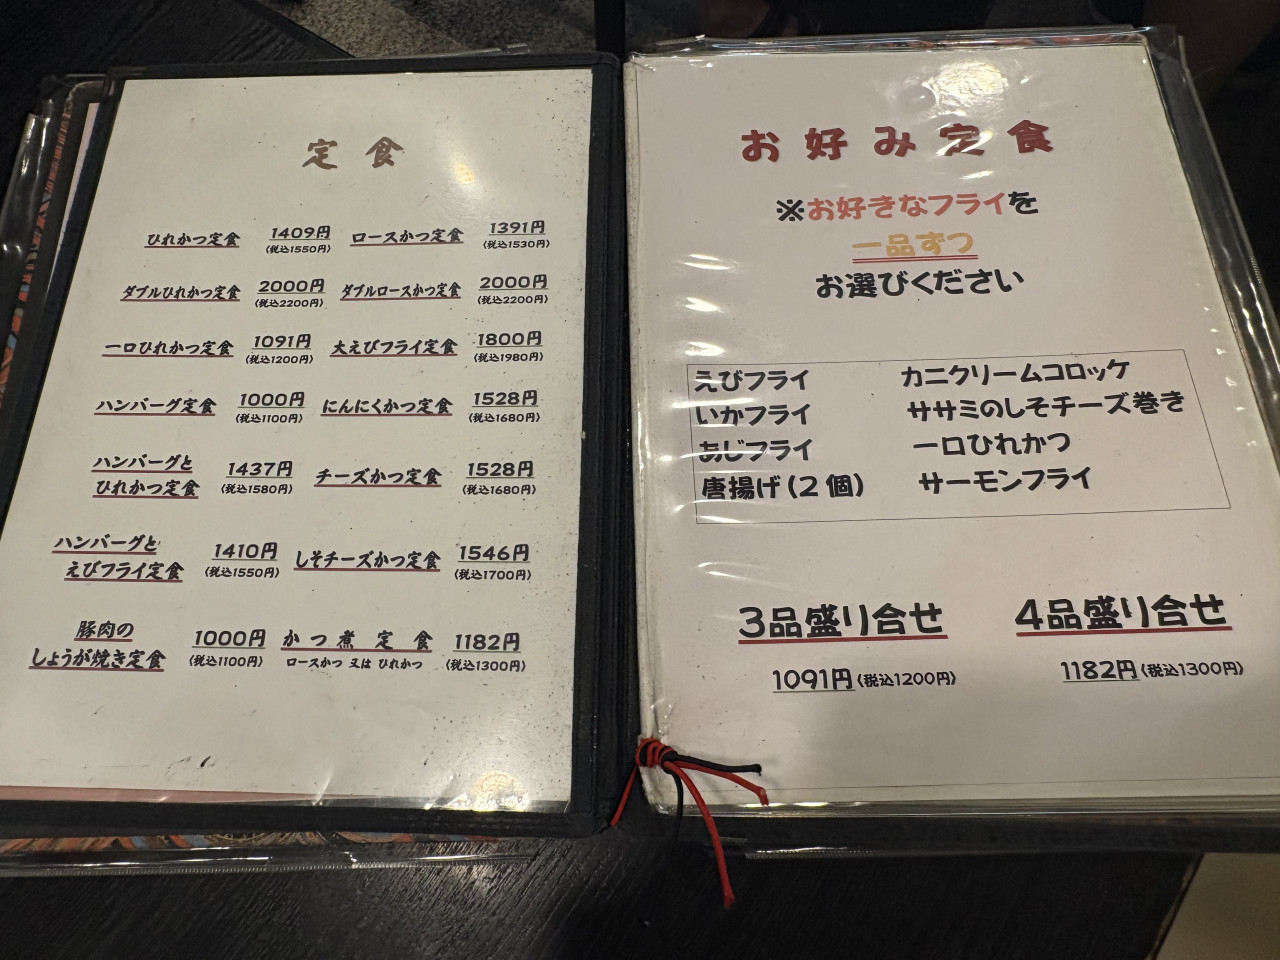 定食
ひれかつ定食 1409円 ロースかつ定食 1391円
(税込1550円) (税込1530円)
ダブルひれかつ定食 2000円 ダブルロースかつ定食 2000円
(税込2200円) (税込2200円)
一口ひれかつ定食 1091円 大えびフライ定食 1800円
(税込1200円) (税込1980円)
ハンバーグ定食 1000円 にんにくかつ定食 1528円
(税込1100円) (税込1680円)
ハンバーグと
ひれかつ定食 1437円 チーズかつ定食 1528円
(税込1580円) (税込1680円)
ハンバーグと
えびフライ定食 1410円 しそチーズかつ定食 1546円
(税込1550円) (税込1700円)
豚肉の
しょうが焼き定食 1000円 かつ煮定食 1182円
(税込1100円) ロースかつ 又は ひれかつ (税込1300円)
お好み定食
※お好きなフライを
一品ずつ
お選びください
えびフライ カニクリームコロッケ
いかフライ ササミのしそチーズ巻き
あじフライ 一口ひれかつ
唐揚げ(2個) サーモンフライ
3品盛り合せ 4品盛り合せ
1091円(税込1200円) 1182円(税込1300円)